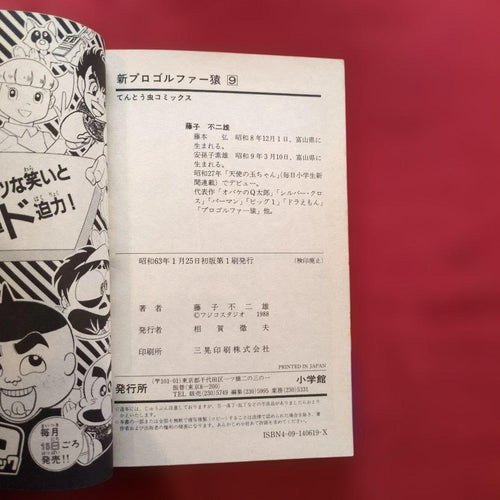 新プロゴルファー猿 9
てんとう虫コミックス
藤子 不二雄
藤本 弘 昭和8年12月1日、富山県に
生まれる。
安孫子素雄 昭和9年3月10日、富山県に
生まれる。
昭和27年「天使の玉ちゃん」(毎日小学生新
聞連載)でデビュー。
代表作「オバケのQ太郎」「シルバー・クロ
ス」「パーマン」「ビッグ1」「ドラえもん」
「プロゴルファー猿」他。
昭和63年1月25日初版第1刷発行 (検印廃止)
著者 藤子不二雄
©フジコスタジオ 1988
発行者 相賀徹夫
印刷所 三晃印刷株式会社
PRINTED IN JAPAN
発行所 (〒101-01)東京都千代田区一ツ橋二の三の一 小学館
振替(東京8-200)
TEL 販売(230)5749 編集(230)5995 業務(230)5331
ISBN4-09-140619-X
ツな笑いと
ド迫力!
毎月
15日ごろ
発売!!